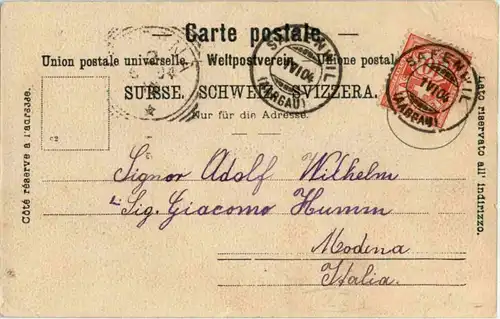 Carte postale.
Union postale universelle. — Weltpostverein. — Unione postale
SUISSE. SCHWEIZ. SVIZZERA.
Nur für die Adresse.
Côté réservé à l'adresse.
Lato riservato all' indirizzo.
SAFENWIL
VI 04
(AARGAU)
SAFENWIL
VI 04
(AARGAU)
Signor Adolf Wilhelm
Sig. Giacomo Humm
Modena
Italia.